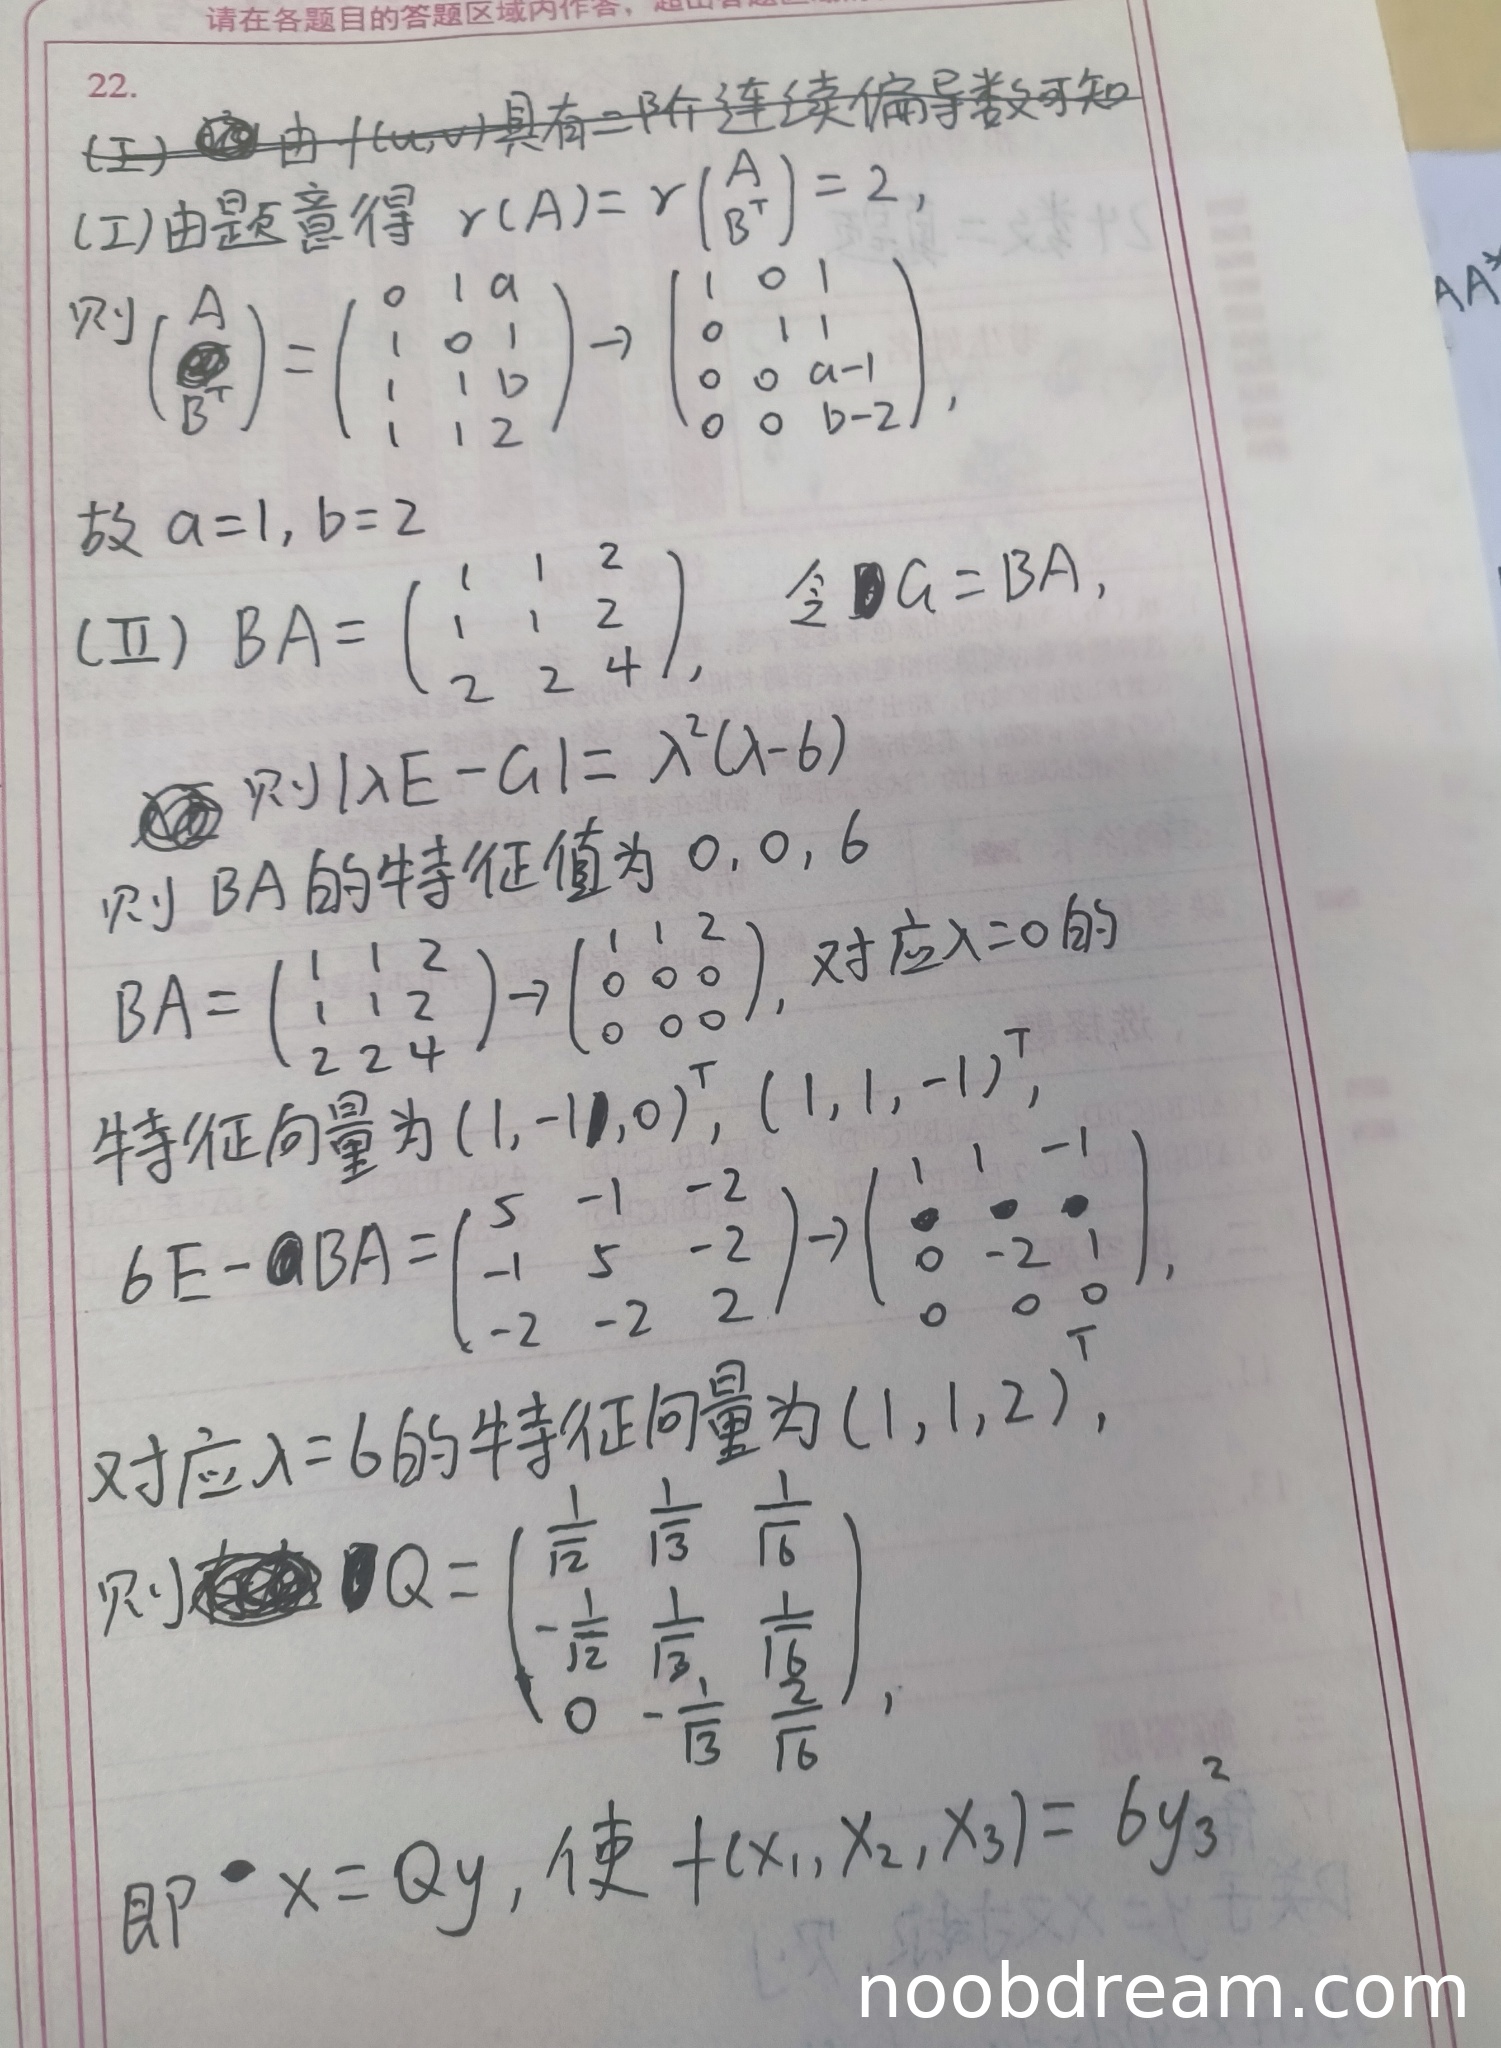 请在各题目的答题区域内作答,
22.
(I) 由f(u,v)具有二阶连续偏导数可知
(I)由题意得 r(A)=r(A Bᵀ)=2,
则(A Bᵀ)=(0 1 a
1 0 1
1 1 b
1 1 2)→(1 0 1
0 1 1
0 0 a-1
0 0 b-2),
故 a=1, b=2
(II) BA=(1 1 2
1 1 2
2 2 4), 令G=BA,
则|λE-G|=λ²(λ-6)
则 BA的特征值为 0, 0, 6
BA=(1 1 2
1 1 2
2 2 4)→(1 1 2
0 0 0
0 0 0), 对应λ=0的
特征向量为(1,-1,0)ᵀ, (1,1,-1)ᵀ,
6E-BA=(5 -1 -2
-1 5 -2
-2 -2 2)→(1 1 -1
0 -2 1
0 0 0),
对应λ=6的特征向量为(1,1,2)ᵀ,
则 Q=(1/√2 1/√3 1/√6
-1/√2 1/√3 1/√6
0 -1/√3 2/√6),
即 x=Qy, 使 f(x₁,x₂,x₃)=6y₃²
AA*
noobdream.com